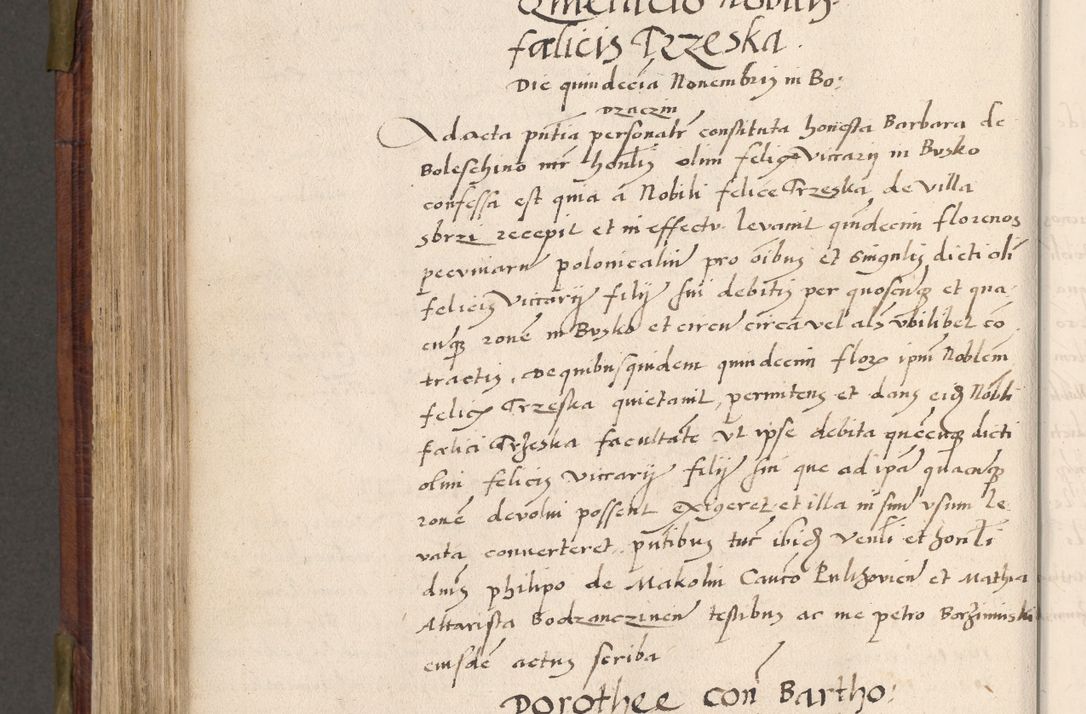 Quietacio Nobilis
fælicis Trzeska.
Die quindecĩa Novembris in Bo:
dzaczin
Ad acta pñtia personalr̃ constituta honesta Barbara de
Boleschino mr̃ honl̃is olim felicis Viccarij in Busko
confessa est quia a Nobili felice Trzeska de villa
sbrzi recepit et in effectu levavit qũdecim florenos
pecuniarũ polonicaliũ pro õibus et singulis dicti oli᷈
felicis Viccarij filij sui debitis per quoscũqʒ et qua
cũqʒ ronẽ in Busko et circũ circa vel als̃ ubilibet cõ
tractis, de quibus quidem quindecim flor ipm̃ Noblem̃
felicẽ Trzeska quietavit, permitens et dans eidʒ Nobli
fælici Trzeska facultatẽ ut ipse debita quẽcũqʒ dicti
olim felicis Viccarij filij sui que ad ipã quacũqʒ
ronẽ devolvi possent exigeret et illa in suũ usum le
vata converteret. pñtibus tũc ibidʒ Venl̃i et honl̃i
dñis philipo de Makolin Canco et Mathia
Altarista Bodzanczinen̄ testibus ac me petro Borziminski
eiusdẽ actus scriba
Dorothee con Bartho: